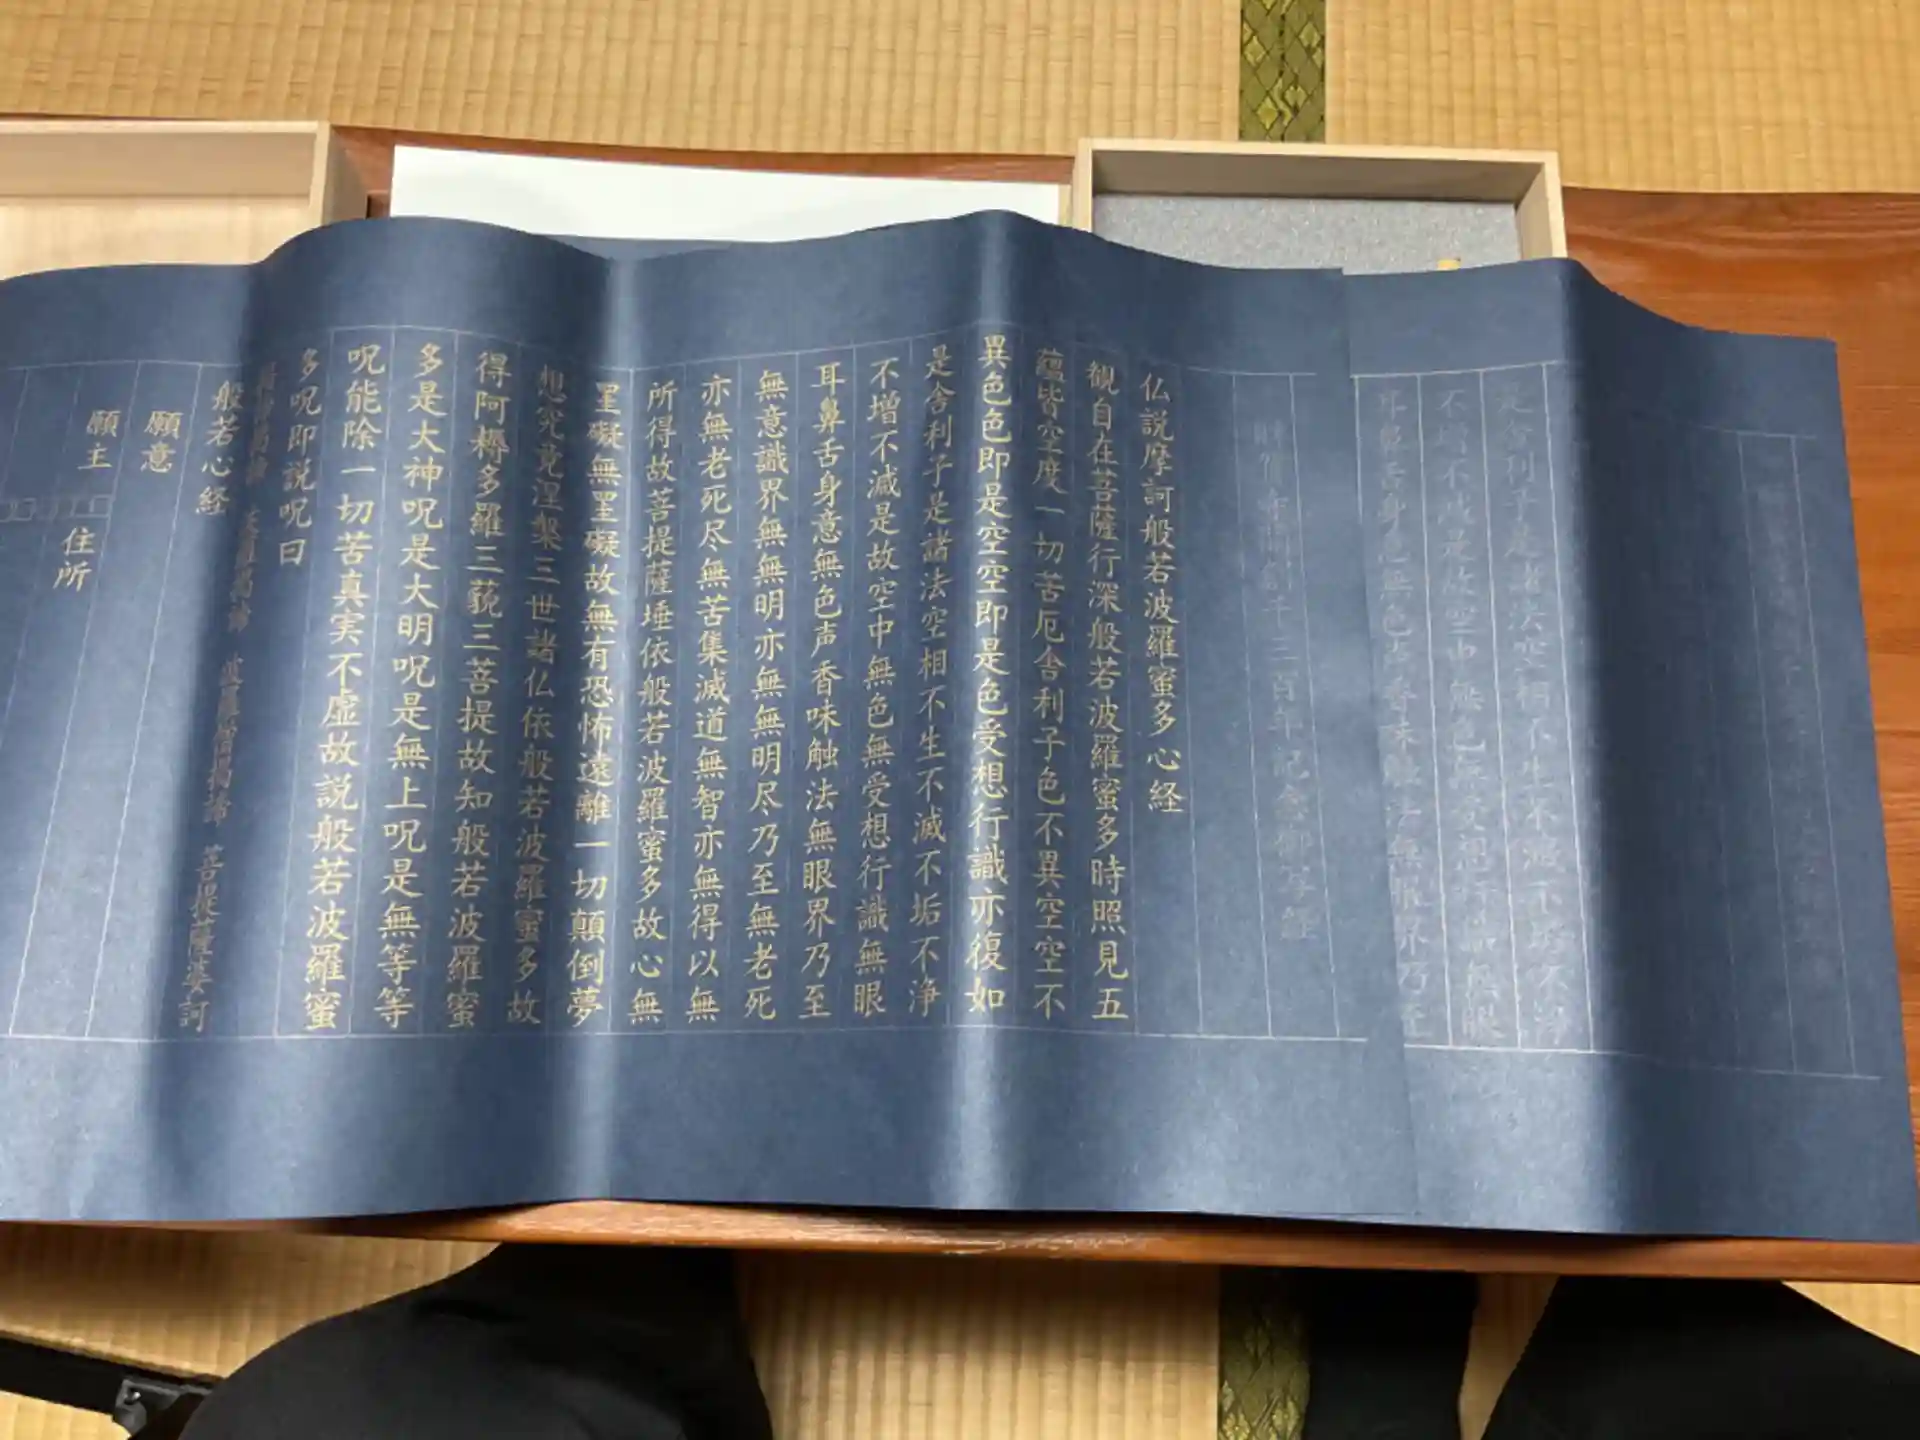 是舎利子是諸法空相不生不滅不垢不浄
不増不減是故空中無色無受想行識無眼
耳鼻舌身意無色声香味触法無眼界乃至
仏説摩訶般若波羅蜜多心経
観自在菩薩行深般若波羅蜜多時照見五
蘊皆空度一切苦厄舎利子色不異空空不
異色色即是空空即是色受想行識亦復如
是舎利子是諸法空相不生不滅不垢不浄
不増不減是故空中無色無受想行識無眼
耳鼻舌身意無色声香味触法無眼界乃至
無意識界無無明亦無無明尽乃至無老死
亦無老死尽無苦集滅道無智亦無得以無
所得故菩提薩埵依般若波羅蜜多故心無
罣礙無罣礙故無有恐怖遠離一切顛倒夢
想究竟涅槃三世諸仏依般若波羅蜜多故
得阿耨多羅三藐三菩提故知般若波羅蜜
多是大神呪是大明呪是無上呪是無等等
呪能除一切苦真実不虚故説般若波羅蜜
多呪即説呪曰
羯諦 波羅羯諦 波羅僧羯諦 菩提薩婆訶
般若心経
願意
願主
住所